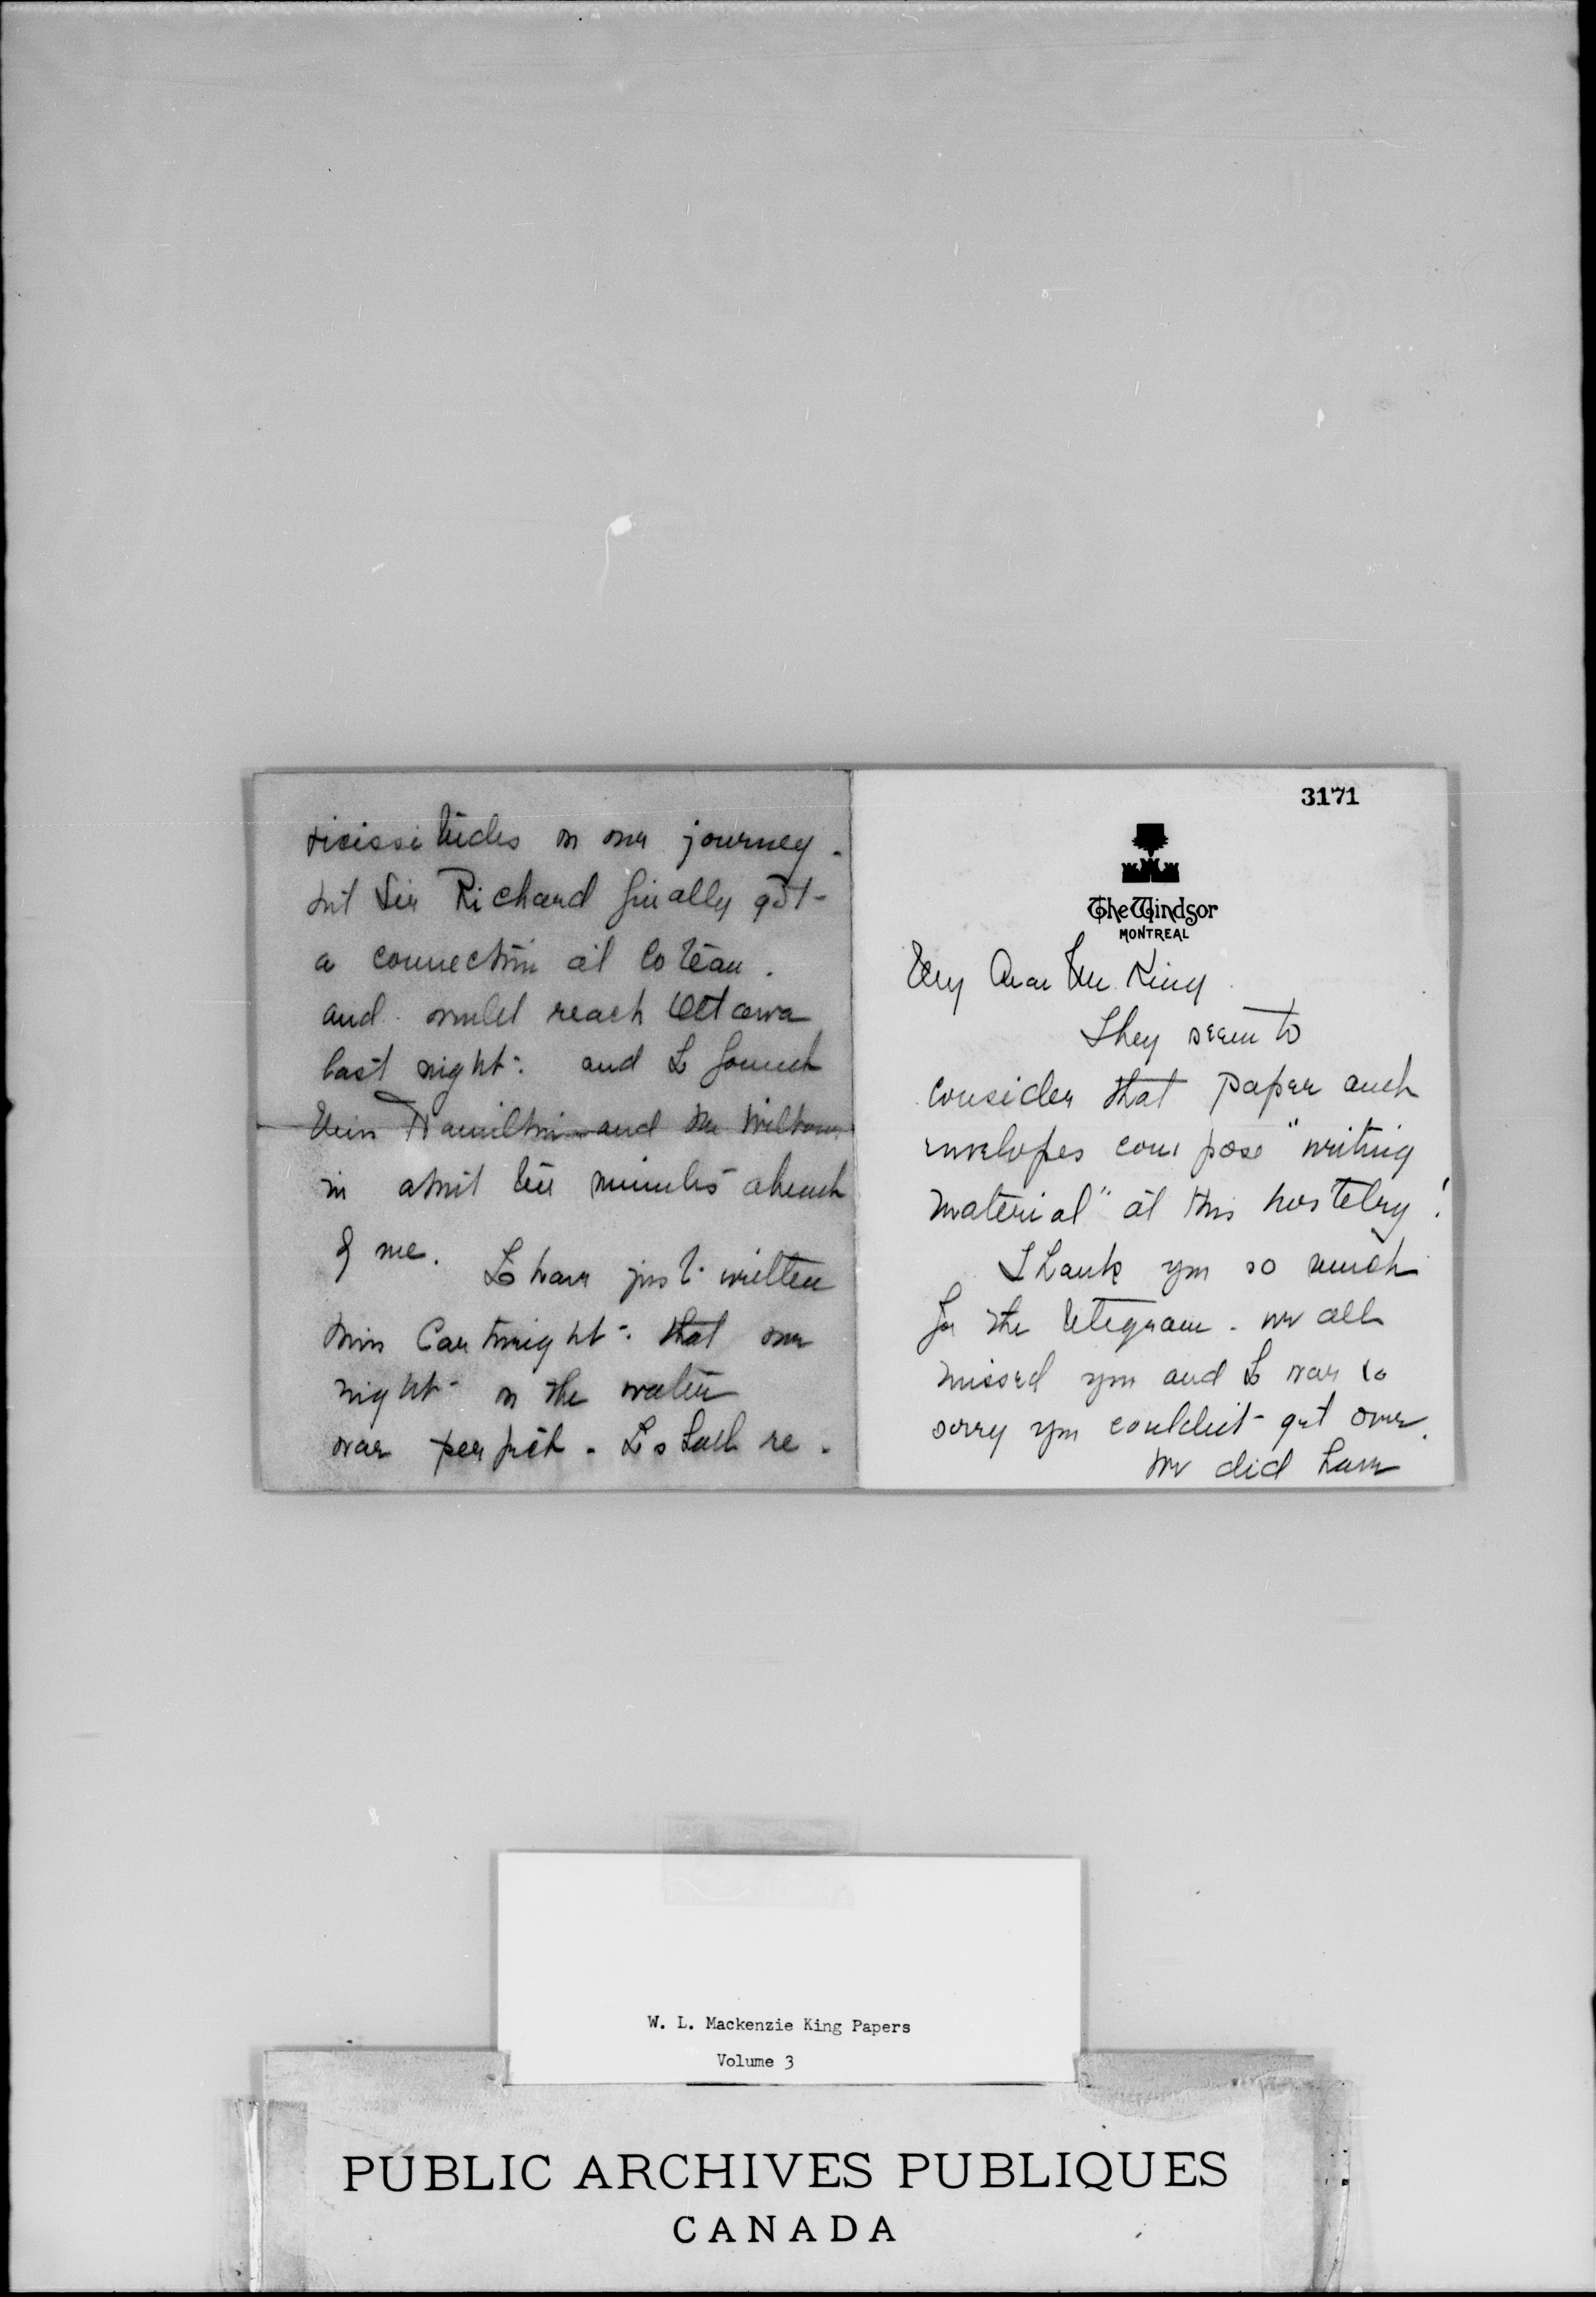 3171
The Windsor
MONTREAL
My Dear Mr. King
They seem to
consider that paper and
envelopes compose "writing
material" at this hostelry!
Thank you so much
for the telegram. we all
missed you and I was so
sorry you couldn't get over.
We did have
vicissitudes on our journey.
but Sir Richard finally got
a connection at Coteau.
and could reach Ottawa
last night. and I found
Miss Hamilton and Mr
in about ten minutes ahead
of me. I have just written
Miss Cartwright that our
night on the water
was perfect. I shall re-
W. L. Mackenzie King Papers
Volume 3
PUBLIC ARCHIVES PUBLIQUES
CANADA